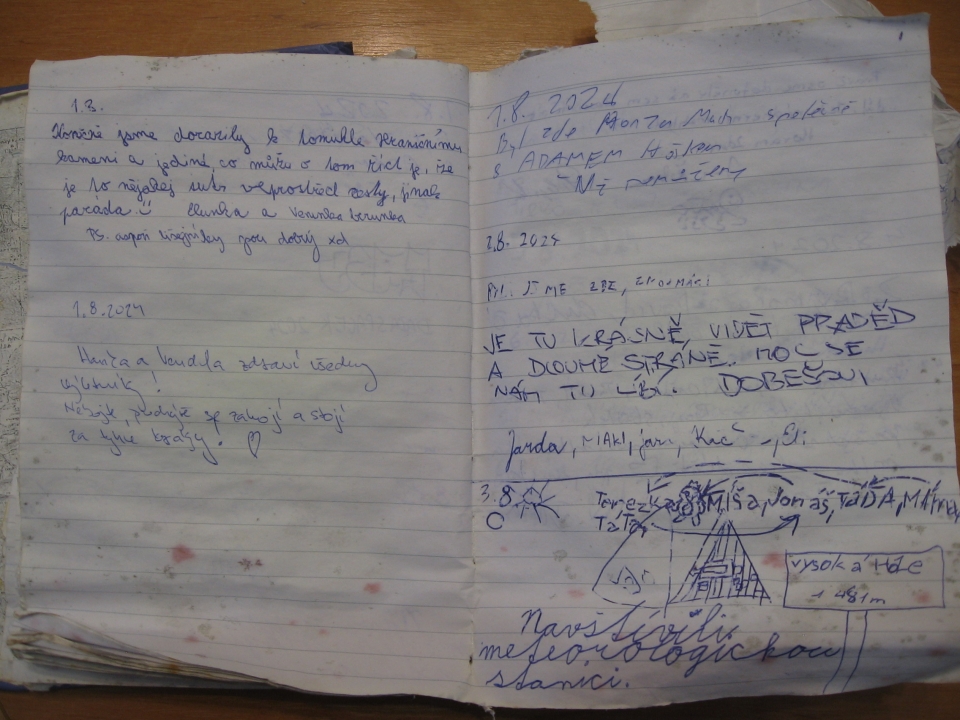 1.8.
Konečně jsme dorazily k tomuhle Hraničnímu
kameni a jediné, co můžu o tom říct je, že
je to nějakej šutr uprostřed cesty, jinak
paráda :) a Verunka berunka
PS. aspoň jsou dobrý xd
1.8.2024
Hanča a Vendula zdraví všechny
výletníky!
Nebojte, se a stojí
za tyhle krásy. ♡
1.8. 2024
Byl zde Honza Mach společně
s ADAMEM
2.8. 2024
BYLI JSME ZDE,
JE TU KRÁSNĚ, VIDĚT PRADĚD
A DLOUHÉ STRÁNĚ. MOC SE
NÁM TU LÍBÍ. DOBEŠOVI
Jarda,
3.8
Terezka, MÍŠA, Jonáš, TáĎA,
TáTa,
vysoká Hole
1 481m
Navštívili
meteorologickou
stanici.